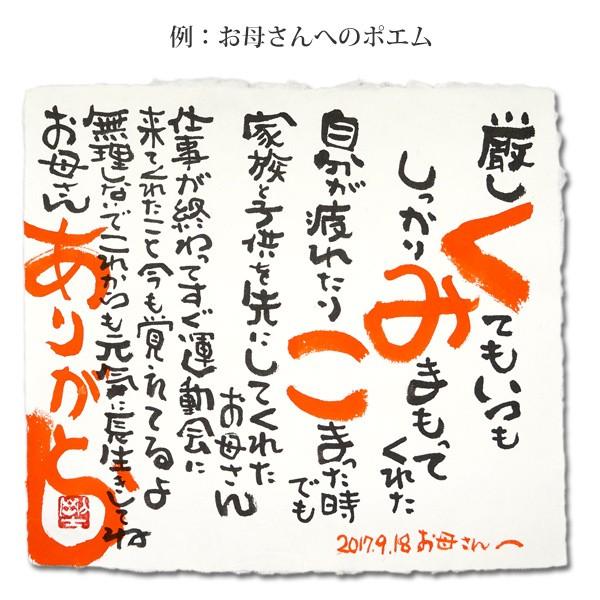 例：お母さんへのポエム
厳しくてもいつも
しっかりみまもって
くれた
自分が疲れたり
こまった時
でも
家族と子供を先にしてくれた
お母さん
仕事が終わってすぐ運動会に
来てくれたこと今も覚えてるよ
無理しないでこれからも元気に長生きしてね
お母さん
ありがとう
2017.9.18 お母さんへ